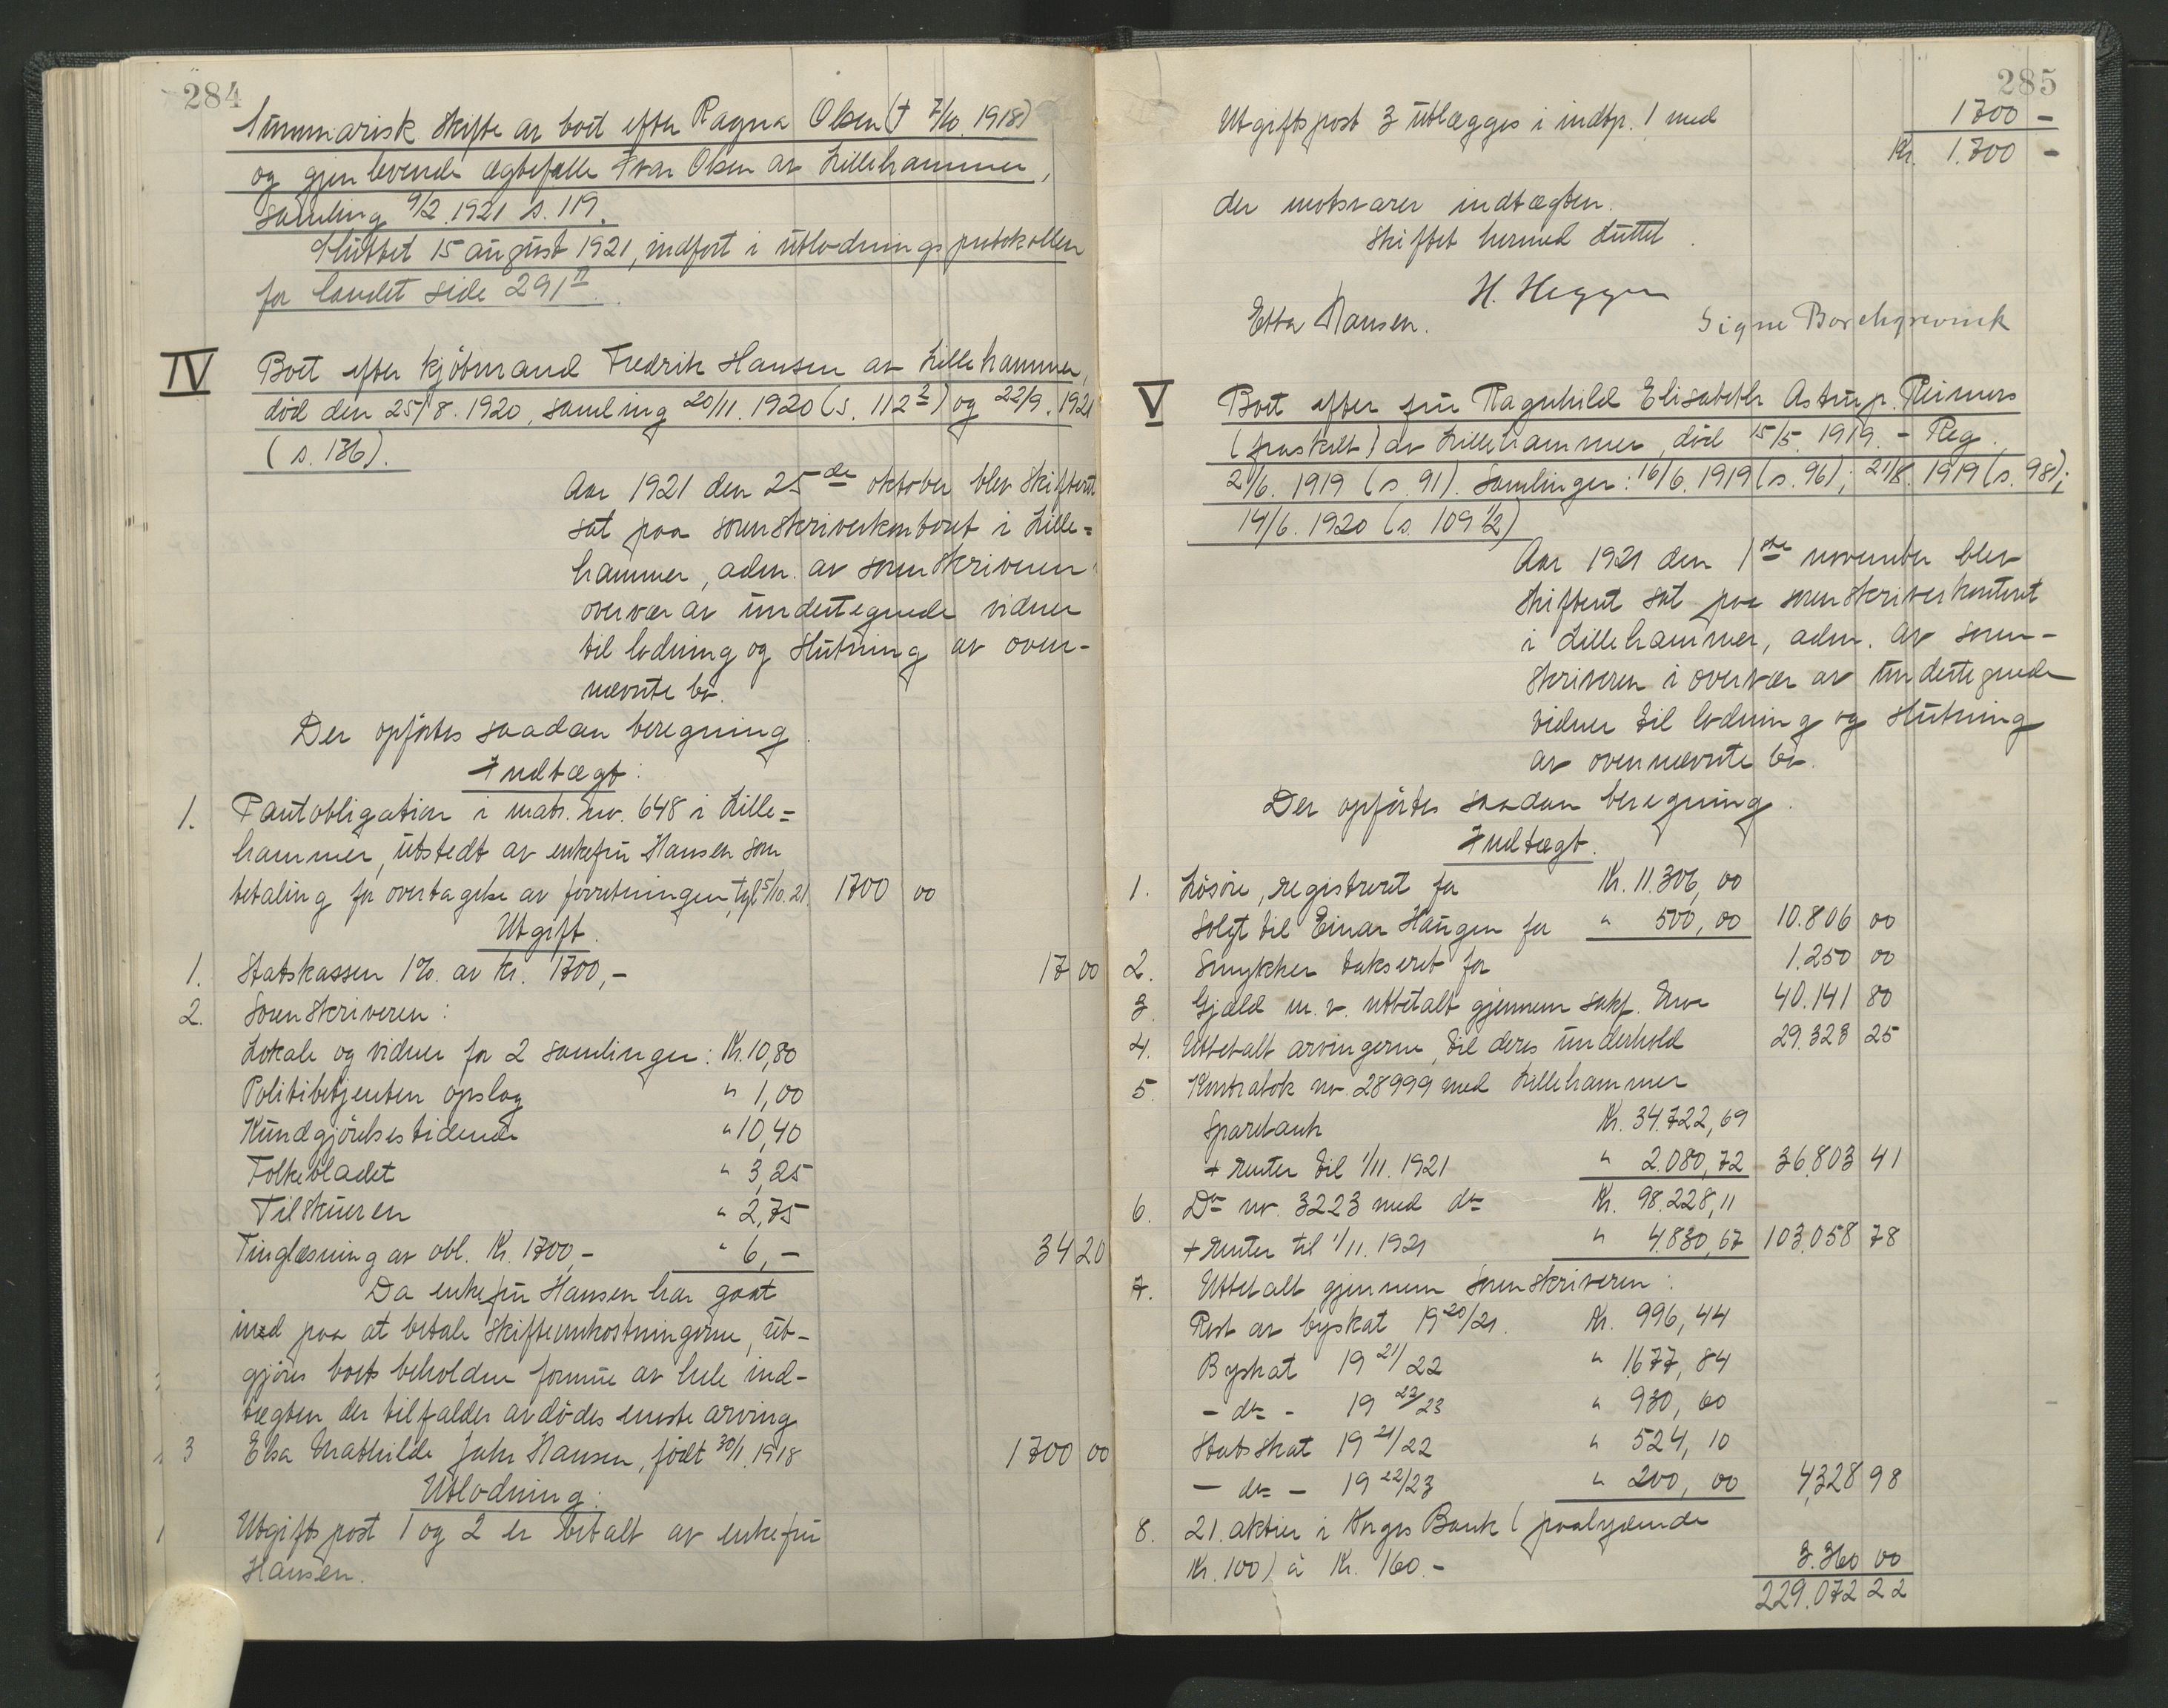 284
Summarisk skifte av boet efter Ragna Olsen († 7/10. 1918)
og gjenlevende ægtefælle Ivar Olsen av Lillehammer,
samling 9/2. 1921 s. 119.
Sluttet 15 august 1921, indført i utlodningsprotokollen
for landet side 291 II.
IV
Boet efter kjøbmand Fredrik Hansen av Lillehammer,
død den 25/8. 1920, samling 20/11. 1920 (s. 112 2) og 22/9. 1921
(s. 136).
Aar 1921 den 25de oktober blev skifteret
sat paa sorenskriverkontoret i Lille=
hammer, adm. av sorenskriveren i
overvær av undertegnede vidner
til lodning og slutning av oven-
nævnte bo.
Der opførtes saadan beregning.
Indtægt:
1. Pantobligation i matr. nr. 648 i Lille=
hammer, utstedt av enkefru Hansen som
betaling for overtagelse av forretningen, tgl 5/10. 21. 1700 00
Utgift.
1. Statskassen 1% av kr. 1700,- 17 00
2. Sorenskriveren:
Lokale og vidner for 2 samlinger: Kr. 10,80
Politibetjenten opslag " 1,00
Kundgjørelsestidende " 10,40
Folkebladet " 3,25
Tilskueren " 2,75
Tinglæsning av obl. Kr. 1700,- " 6,- 34 20
Da enkefru Hansen har gaat
ind paa at betale skifteomkostningerne, ut-
gjøres boets beholdne formue av hele ind-
tægten der tilfalder avdødes eneste arving
3 Elsa Mathilde Jahr Hansen, født 30/1. 1918 1700 00
Utlodning:
Utgiftspost 1 og 2 er betalt av enkefru
Hansen.
285
Utgiftspost 3 utlægges i indtp. 1 med 1700 -
Kr. 1.700 -
der motsvarer indtægten.
Skiftet hermed sluttet.
H. Heggen
Etta Hansen. Signe Borchgrevink
V
Boet efter fru Ragnhild Elisabeth Astrup Reimers
(fraskilt) av Lillehammer, død 15/5. 1919. - Reg.
2/6. 1919 (s. 91). Samlinger: 16/6. 1919 (s. 96); 21/8. 1919 (s. 98);
14/6. 1920 (s. 109 1/2)
Aar 1921 den 1ste november blev
skifteret sat paa sorenskriverkontoret
i Lillehammer, adm. av soren-
skriveren i overvær av undertegnede
vidner til lodning og slutning
av ovennævnte bo.
Der opførtes saadan beregning.
Indtægt.
1. Løsøre, registreret for Kr. 11.306,00
Solgt til Einar Haugen for " 500,00 10.806 00
2. Smykker takseret for 1.250 00
3. Gjæld m. v. utbetalt gjennem sakf. 40.141 80
4. Utbetalt arvingerne, til deres underhold 29.328 25
5. Kontrabok nr. 28999 med Lillehammer
Sparebank Kr. 34.722,69
+ renter til 1/11. 1921 " 2.080,72 36.803 41
6. Do nr. 3223 med do Kr. 98.228,11
+ renter til 1/11. 1921 " 4.830,67 103.058 78
7. Utbetalt gjennem sorenskriveren:
Rest av byskat 19 20/21. Kr. 996,44
Byskat 19 21/22 " 1677,84
- do - 19 22/23 " 930,60
Statsskat 19 21/22 " 524,10
- do - 19 22/23 " 200,00 4,328 98
8. 21 aktier i Norges Bank (paalydende
Kr. 100) à Kr. 160.- 3.360 00
229.072 22